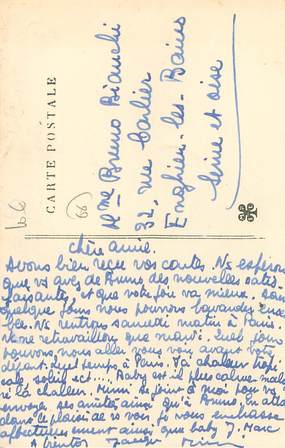 CARTE POSTALE
66
Mme Bruno Bianchi
32, rue Carlier
Enghien-les-Bains
Seine et Oise
66
Chère amie.
Avons bien reçu vos cartes. Ns espérons
que vs avez de Bruno des nouvelles satis-
faisantes, et que votre foie va mieux. Dans
quelque jours nous pourrons bavarder ensem-
ble. Ns rentrons samedi matin à Paris.
Ns ne retravaillons que mardi. Quel jour
pouvons nous aller vous voir avant votre
départ. Quel temps à Paris. Ici chaleur tropi-
cale, soleil etc... Baby est il plus calme malg-
ré la chaleur. Mimi se joint à moi pour vs
envoyer ses amitiés ainsi qu'à Bruno, en atten-
dant le plaisir de vs voir je vous embrasse
affectueusement ainsi que baby J. Marc
A bientôt